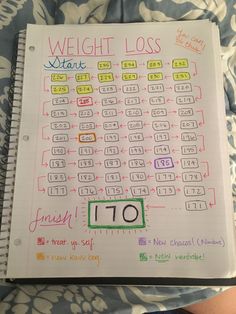 WEIGHT LOSS
You can do this!
Start 235 234 233 232
226 227 228 229 230 231
225 224 223 222 221 220
214 215 216 217 218 219
213 212 211 210 209 208
202 203 204 205 206 207
201 200 199 198 197 196
190 191 192 193 194 195
189 188 187 186 185 184
178 179 180 181 182 183
177 176 175 174 173 172
171
finish! 170
= treat yo self.
= New chacos!
= new kavu bag.
= NEW wardrobe!